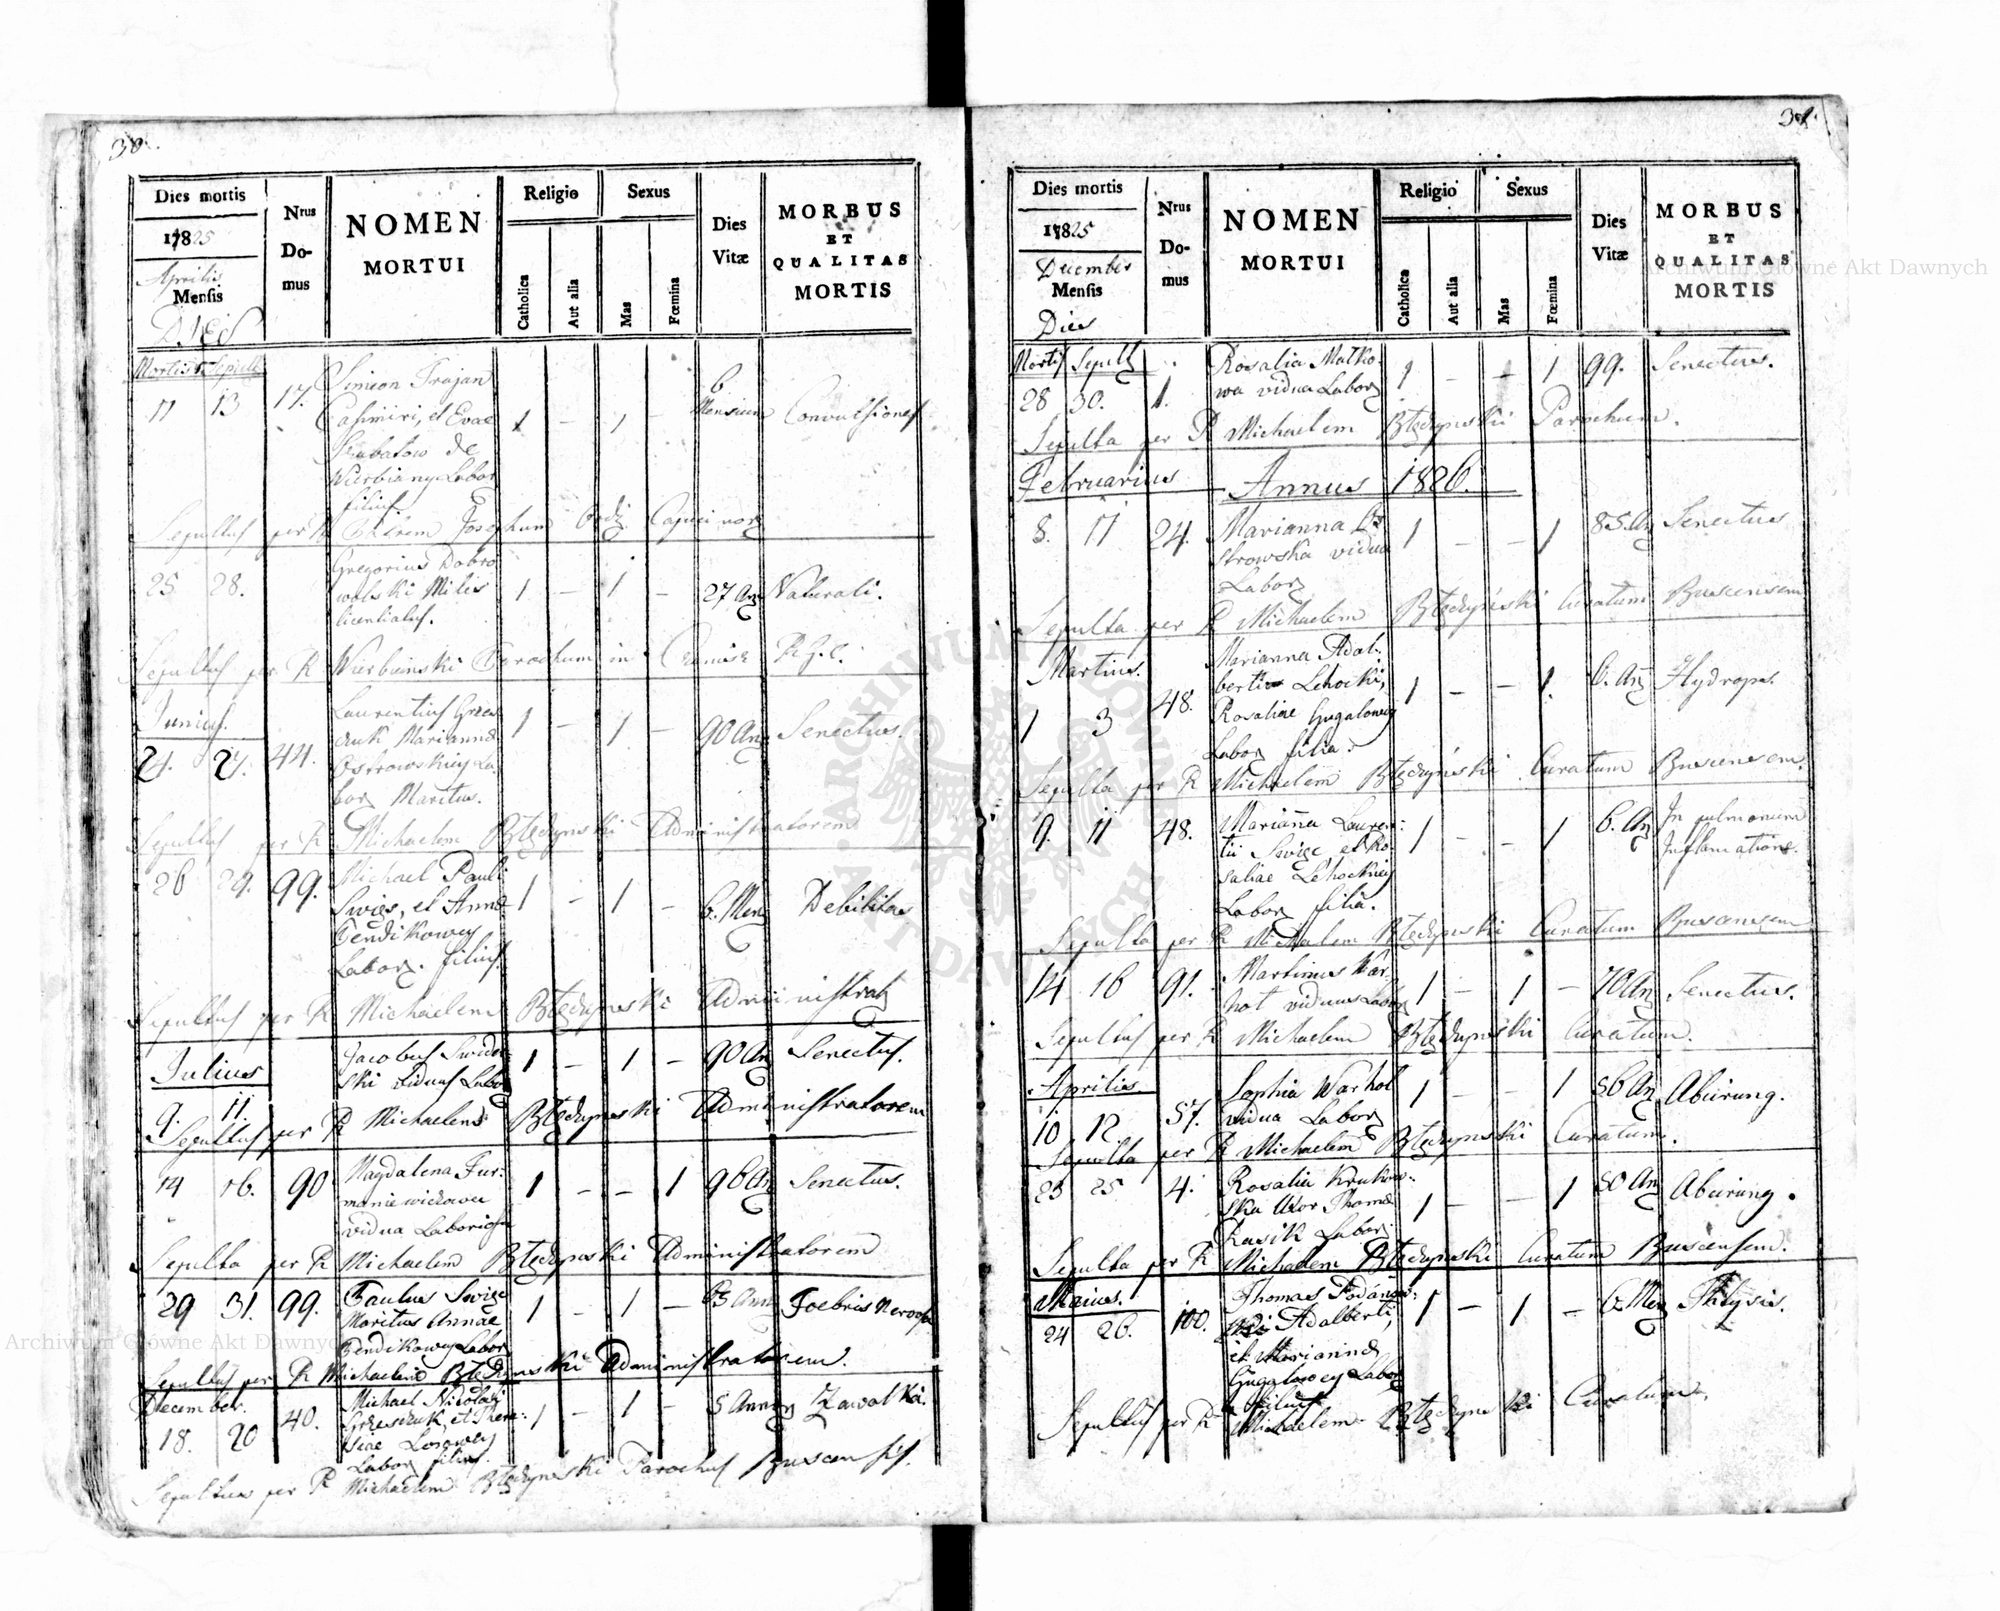 30.
Dies mortis
1825
Aprilis
Mensis
Dies
Nrus
Do-
mus
NOMEN
MORTUI
Religio
Catholica
Aut alia
Sexus
Mas
Fœmina
Dies
Vitæ
MORBUS
ET
QUALITAS
MORTIS
Mortis Sepult
11 13 17. Simeon Trojan
Casimiri, et Evae
de
Wierbiany Labor
filius
1 – 1 – 6 Mensium Convulsiones
Sepultus per R Josephum Ord. Capucinor
25 28. Gregorius Dobro
wolski Miles
licentiatus.
1 – 1 – 27 An Naturali.
Sepultus per R Wierbinski Parochum in
Junius.
24. 27. 44. Laurentius Grzes
czuk Mariannae
Ostrowskiey La-
bor Maritus.
1 – 1 – 90 An Senectus.
Sepultus per R Michaelem Błędzynski Administratorem
26 29. 99. Michael Pauli
Swigs, et Annae
Bendikowey
Labor. filius.
1 – 1 – 6. Men Debilitas
Sepultus per R Michaelem Błędzynski Administrat
Julius
9. 11. Jacobus Swider
ski viduus Labor
1 – 1 – 90 An Senectus.
Sepultus per R Michaelem Błędzynski Administratorem
14 16. 90 Magdalena Fur-
maniewiczowa
vidua Laboriosa
1 – – 1 96 An Senectus.
Sepulta per R Michaelem Błędzynski Administratorem
29 31. 99. Paulus Swigs
Maritus Annae
Bendikowey Labor
1 – 1 – 63 Ann Foebris Nervosa
Sepultus per R Michaelem Błędzynski Administratorem.
December.
18. 20 40. Michael Nicolai
Grzesczuk et There-
siae
Labor filius.
1 – 1 – 5 Annor Zawalka.
Sepultus per R Michaelem Błędzynski Parochus Buscensis.
31.
Dies mortis
1825
December
Mensis
Dies
Nrus
Do-
mus
NOMEN
MORTUI
Religio
Catholica
Aut alia
Sexus
Mas
Fœmina
Dies
Vitæ
MORBUS
ET
QUALITAS
MORTIS
Mortis Sepult
28 30. 1. Rosalia Matko-
wa vidua Labor
1 – – 1 99. Senectus.
Sepulta per R Michaelem Błędzynski Parochum.
Februarius Annus 1826.
8. 11 24. Marianna Os
trowska vidua
Labor
1 – – 1 85. An Senectus
Sepulta per R Michaelem Błędzyński Curatum Buscensem
Martius.
1 3 48. Marianna Adal-
berti Lehocki,
Rosaliae Gugalowey
Labor filia.
1 – – 1. 6. An Hydrops.
Sepulta per R Michaelem Błędzyński Curatum Buscensem.
9. 11 48. Marianna Lauren-
tii Swigs et Ro-
saliae Lehockiey
Labor filia.
1 – – 1 6. An In pulmonum
Inflamatione.
Sepulta per R Michaelem Błędzynski Curatum Buscensem
14 16 91. Martinus War-
hol viduus Labor
1 – 1 – 70 An Senectus.
Sepultus per R Michaelem Błędzynski Curatum.
Aprilis.
10 12 57. Sophia Warhol
vidua Labor
1 – – 1 56 An Abcirung.
Sepulta per R Michaelem Błędzynski Curatum.
23 25. 4. Rosalia Krukow-
ska Uxor Thomae
Kusik Labor
1 – – 1 50 An Abcirung.
Sepulta per R Michaelem Błędzynski Curatum Buscensem.
Maius.
24 26. 100. Thomas
Adalberti,
et Mariannae
Gugalowey Labor
filius
1 – 1 – 6 Men Phtysis.
Sepultus per R Michaelem Błędzynski Curatum.
Archiwum Główne Akt Dawnych
Archiwum Główne Akt Dawnych
ARCHIWUM GŁÓWNE AKT DAWNYCH